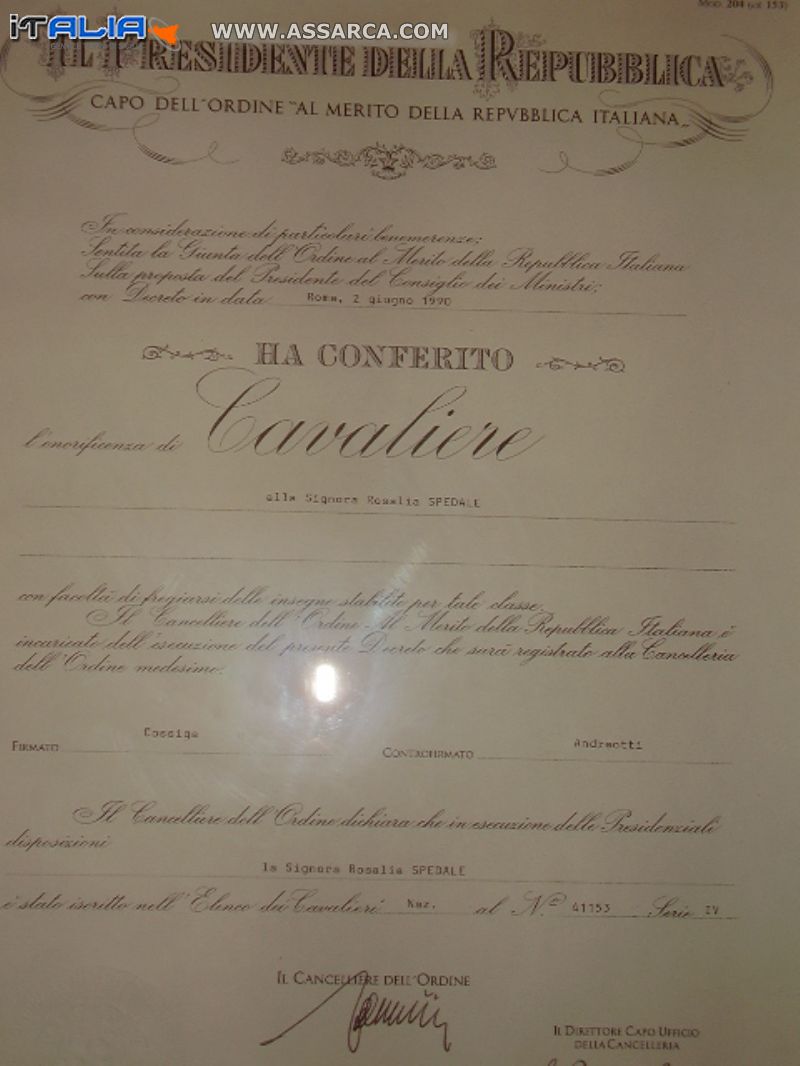 iTALIA WWW.ASSARCA.COM
MOD. 204 (ex 153)
IL PRESIDENTE DELLA REPUBBLICA
CAPO DELL'ORDINE "AL MERITO DELLA REPVBBLICA ITALIANA"
In considerazione di particolari benemerenze;
Sentita la Giunta dell'Ordine al Merito della Repubblica Italiana
Sulla proposta del Presidente del Consiglio dei Ministri;
con Decreto in data Roma, 2 giugno 1990
HA CONFERITO
l'onorificenza di Cavaliere
alla Signora Rosalia SPEDALE
con facoltà di fregiarsi delle insegne stabilite per tale classe.
Il Cancelliere dell'Ordine Al Merito della Repubblica Italiana è
incaricato dell'esecuzione del presente Decreto che sarà registrato alla Cancelleria
dell'Ordine medesimo.
FIRMATO Cossiga CONTROFIRMATO Andreotti
Il Cancelliere dell'Ordine dichiara che in esecuzione delle Presidenziali
disposizioni
la Signora Rosalia SPEDALE
è stato iscritto nell'Elenco dei Cavalieri Naz. al N.º 41153 Serie IV
IL CANCELLIERE DELL'ORDINE
IL DIRETTORE CAPO UFFICIO
DELLA CANCELLERIA